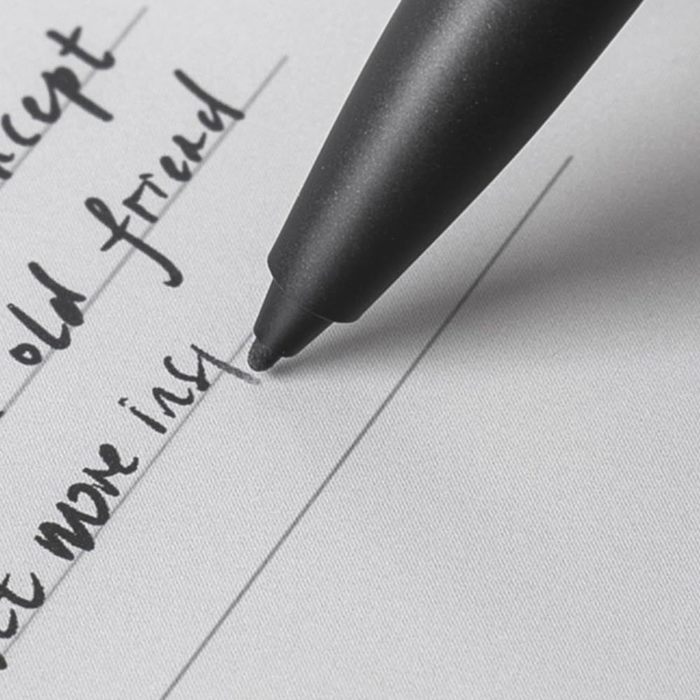 ncept
old friend
et more ins